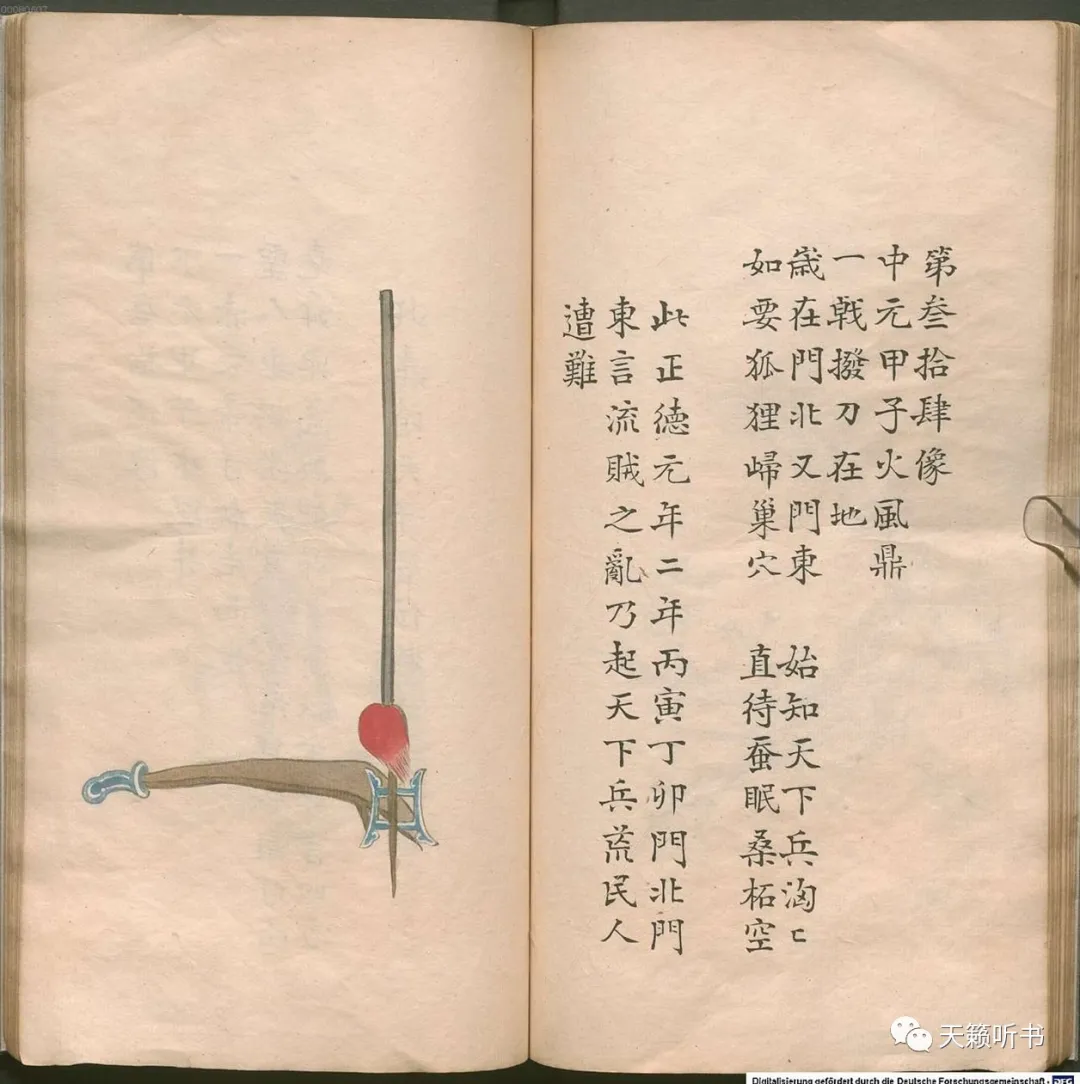 第叁拾肆像
中元甲子火風鼎
一戟撥刀在地
歲在門北又門東　始知天下兵洶〻
如要狐狸歸巢穴　直待蚕眠桑柘空
此正德元年二年丙寅丁卯門北門
東言流賊之亂乃起天下兵荒民人
遭難
天籁听书
Digitalisierung gefördert durch die Deutsche Forschungsgemeinschaft - DFG